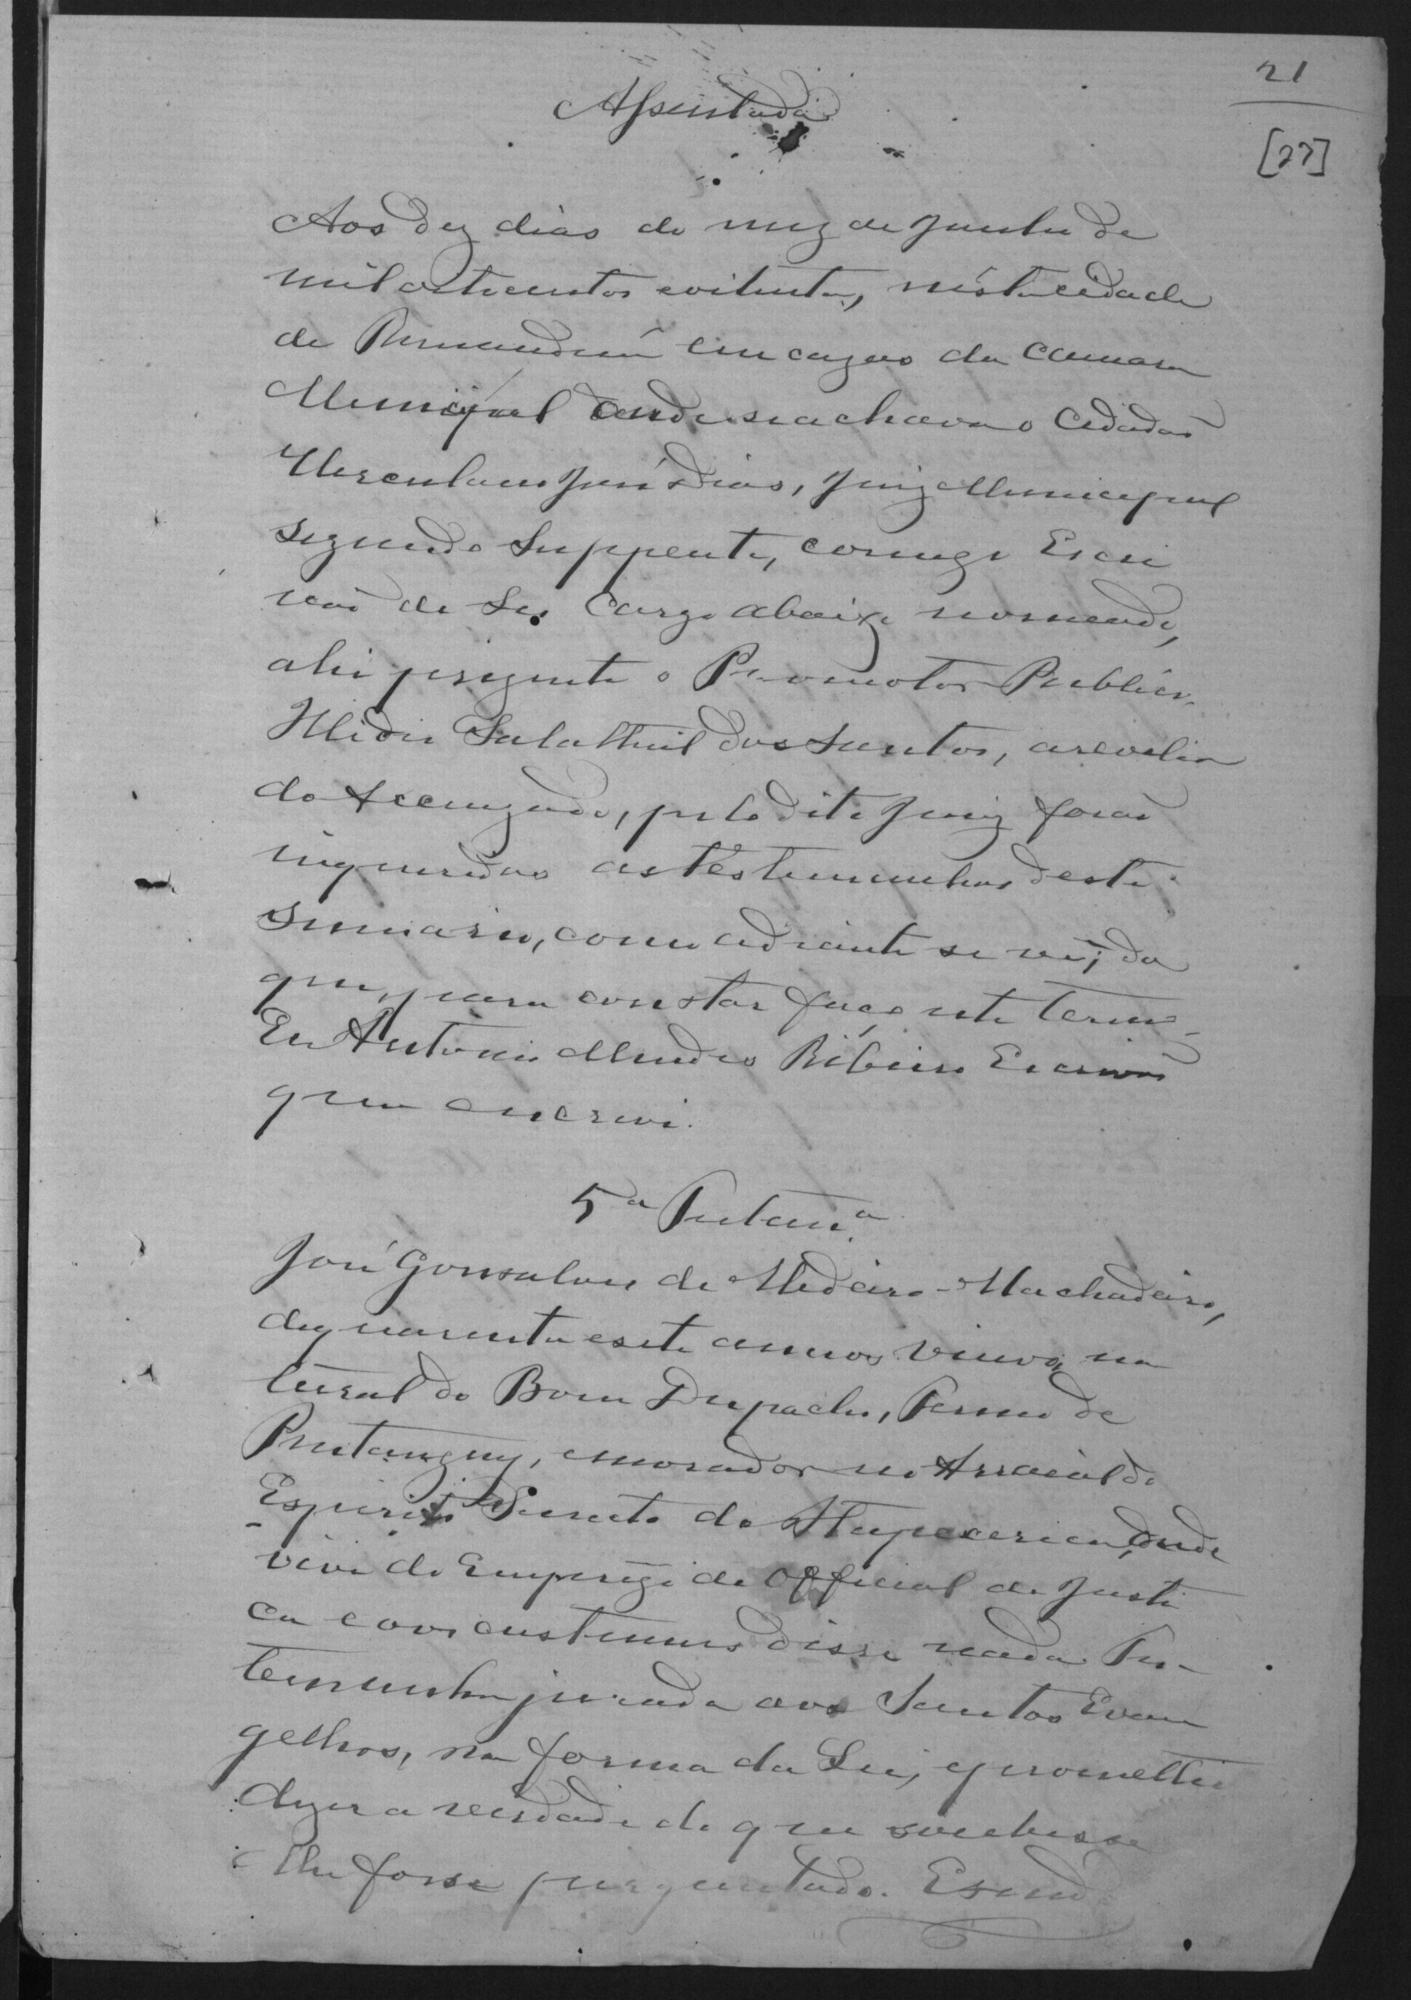 21
[27]
Assentada
Aos dez dias do mez de Junho de
mil oitocentos e oitenta, nésta cidade
de Tamanduá em cazas da Camara
Municipal onde se achava o Cidadão
Herculano José Dias, Juiz Municipal
segundo Suppente, comigo Escri
vão de seu cargo abaixo nomeado,
ahi prezente o Promotor Publico
Illidio Salathiel dos Santos, a revelia
do Accuzado, pelo dito Juiz forão
inqueridas as testemunhas deste
sumario, como adiante se vê; do
que, para constar faço este termo.
Eu Antonio Mendes Ribeiro Escrivão
que escrevi.
5ª Testemª
José Gonsalves de Medeiros Machadeiro,
de quarenta e sete annos viuvo, na
tural do Bom Despacho, Termo de
Pitanguy, morador no Arraial do
Espirito Santo da Itapecerica, onde
vive do Emprego de Official de Justi
ça e aos custumes disse nada. Tes
temunha jurada aos Santos Evan
gelhos, na forma da Lei, e prometteu
dizer a verdade do que soubesse
e lhe fosse perguntado. E sendo